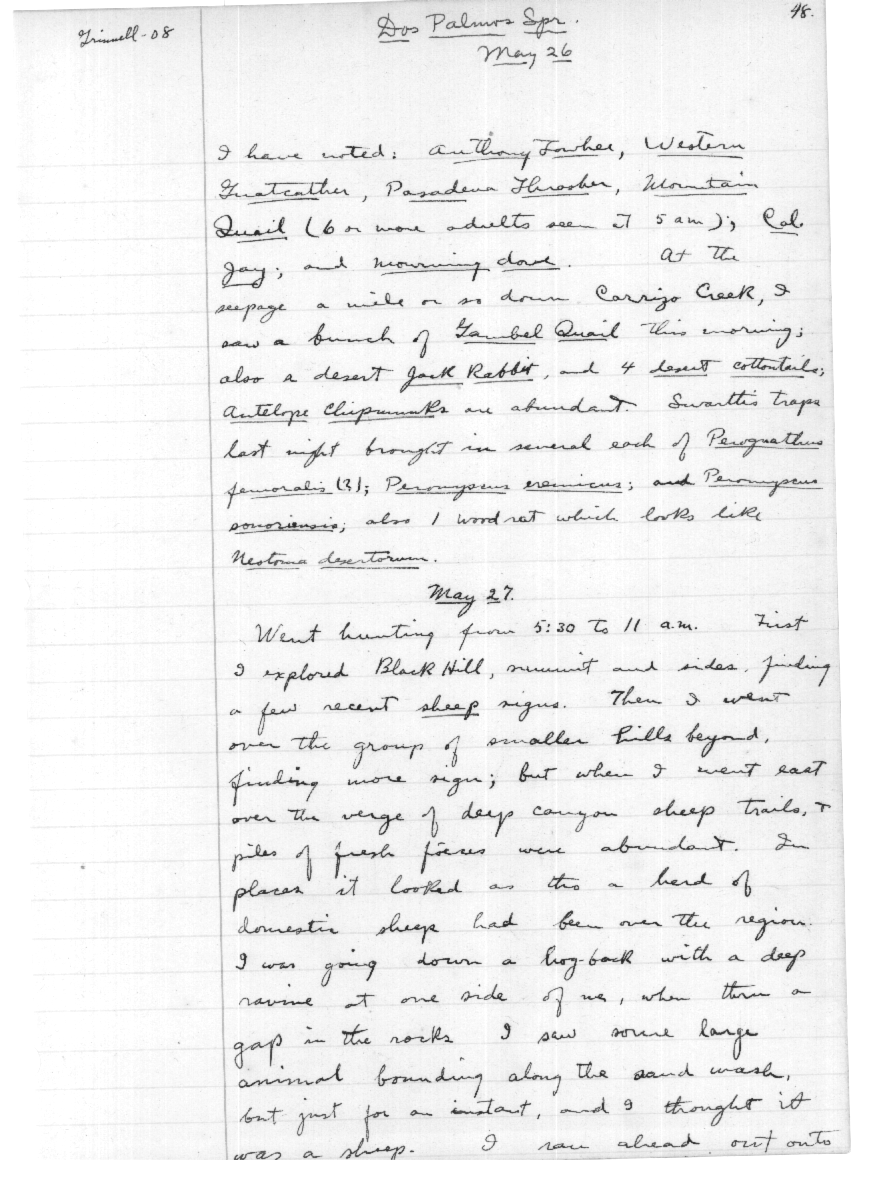 Grinnell-08
48.
Dos Palmos Spr.
May 26
I have noted: Anthony Towhee, Western
Gnatcatcher, Pasadena Thrasher, Mountain
Quail (6 or more adults seen at 5 am); Cal.
Jay; and mourning dove. At the
seepage a mile or so down Carrizo Creek, I
saw a bunch of Gambel Quail this morning;
also a desert Jack Rabbit, and 4 desert cottontails;
Antelope Chipmunks are abundant. Swarth's traps
last night brought in several each of Perognathus
femoralis (?); Peromyscus eremicus; and Peromyscus
sonoriensis; also 1 wood rat which looks like
Neotoma desertorum.
May 27.
Went hunting from 5:30 to 11 a.m. First
I explored Black Hill, summit and sides, finding
a few recent sheep signs. Then I went
over the group of smaller hills beyond,
finding more sign; but when I went east
over the verge of deep canyon sheep trails, &
piles of fresh fæces were abundant. In
places it looked as tho a herd of
domestic sheep had been over the region.
I was going down a hog-back with a deep
ravine at one side of me, when thru a
gap in the rocks I saw some large
animal bounding along the sand wash,
but just for an instant, and I thought it
was a sheep. I ran ahead out onto